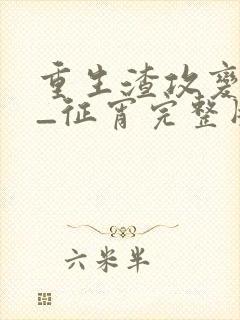 重生渣攻
_征宵完整
六米半